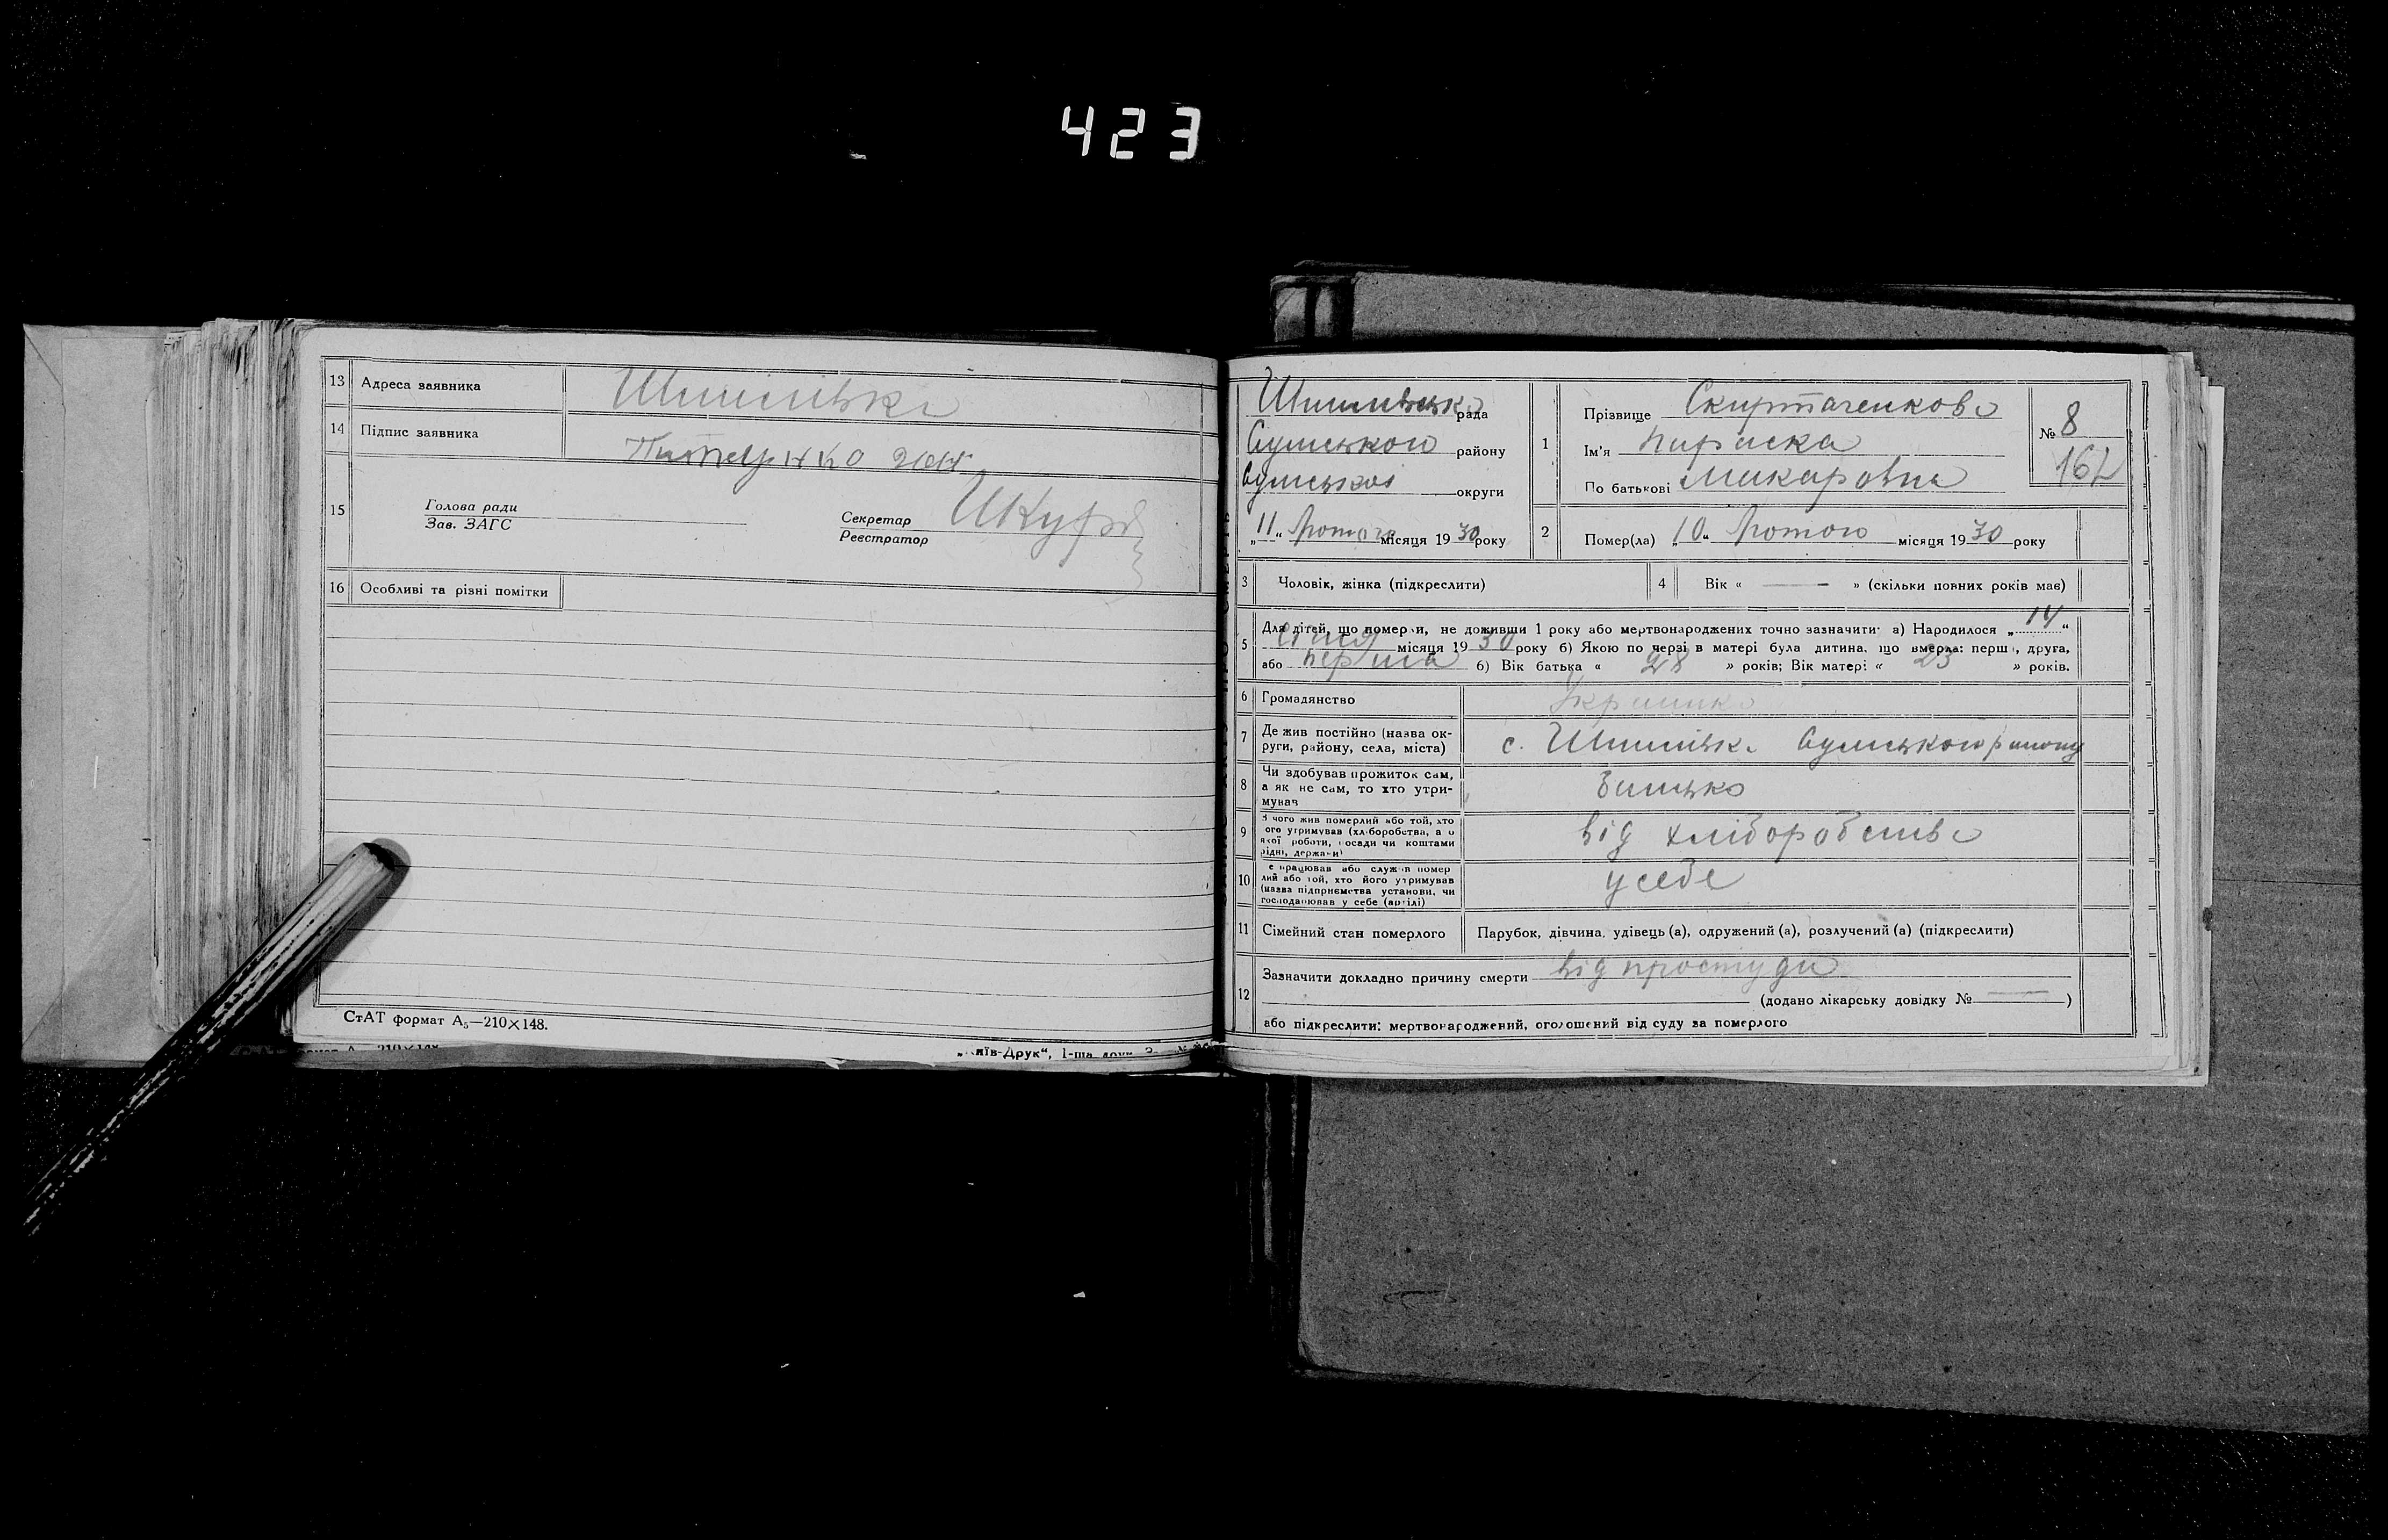 423
13 Адреса заявника
14 Підпис заявника
15 Голова ради
Зав. ЗАГС
Секретар
Реєстратор
16 Особливі та різні помітки
СтАТ формат А₅—210×148.
рада
Сумського району
Сумської округи
„11“ Лютого місяця 1930 року
1 Прізвище Скирташенкова
Ім'я Параска
По батькові Макаровна
№ 8
162
2 Помер(ла) „10“ Лютого місяця 1930 року
3 Чоловік, жінка (підкреслити)
4 Вік « — » (скільки повних років має)
5 Для дітей, що померли, не доживши 1 року або мертвонароджених точно зазначити: а) Народилося „14“
Січня місяця 1930 року б) Якою по черзі в матері була дитина, що вмерла: перша, друга,
або перша б) Вік батька « 28 » років; Вік матері « 23 » років.
6 Громадянство Українка
7 Де жив постійно (назва ок-
руги, району, села, міста)
с. Сумського району
8 Чи здобував прожиток сам,
а як не сам, то хто утри-
мував
Батько
9 З чого жив померлий або той, хто
його утримував (хліборобства, а о
якої роботи, посади чи коштами
рідні, держави)
від хліборобства
10 Де працював або служив помер
лий або той, хто його утримував
(назва підприємства установи, чи
господарював у себе (артілі)
у себе
11 Сімейний стан померлого
Парубок, дівчина, удівець (а), одружений (а), розлучений (а) (підкреслити)
12 Зазначити докладно причину смерти від простуди
(додано лікарську довідку № — )
або підкреслити: мертвонароджений, оголошений від суду за померлого